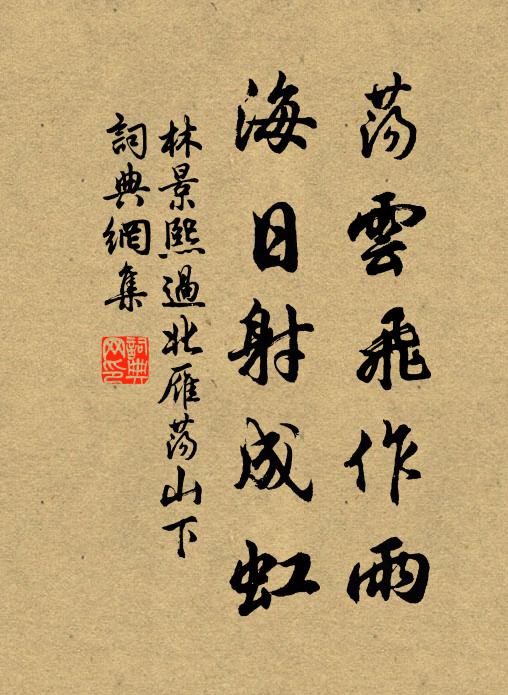 蕩雲飛作雨
海日射成虹
林景熙過北雁蕩山下
詞典網集
詞典
网印